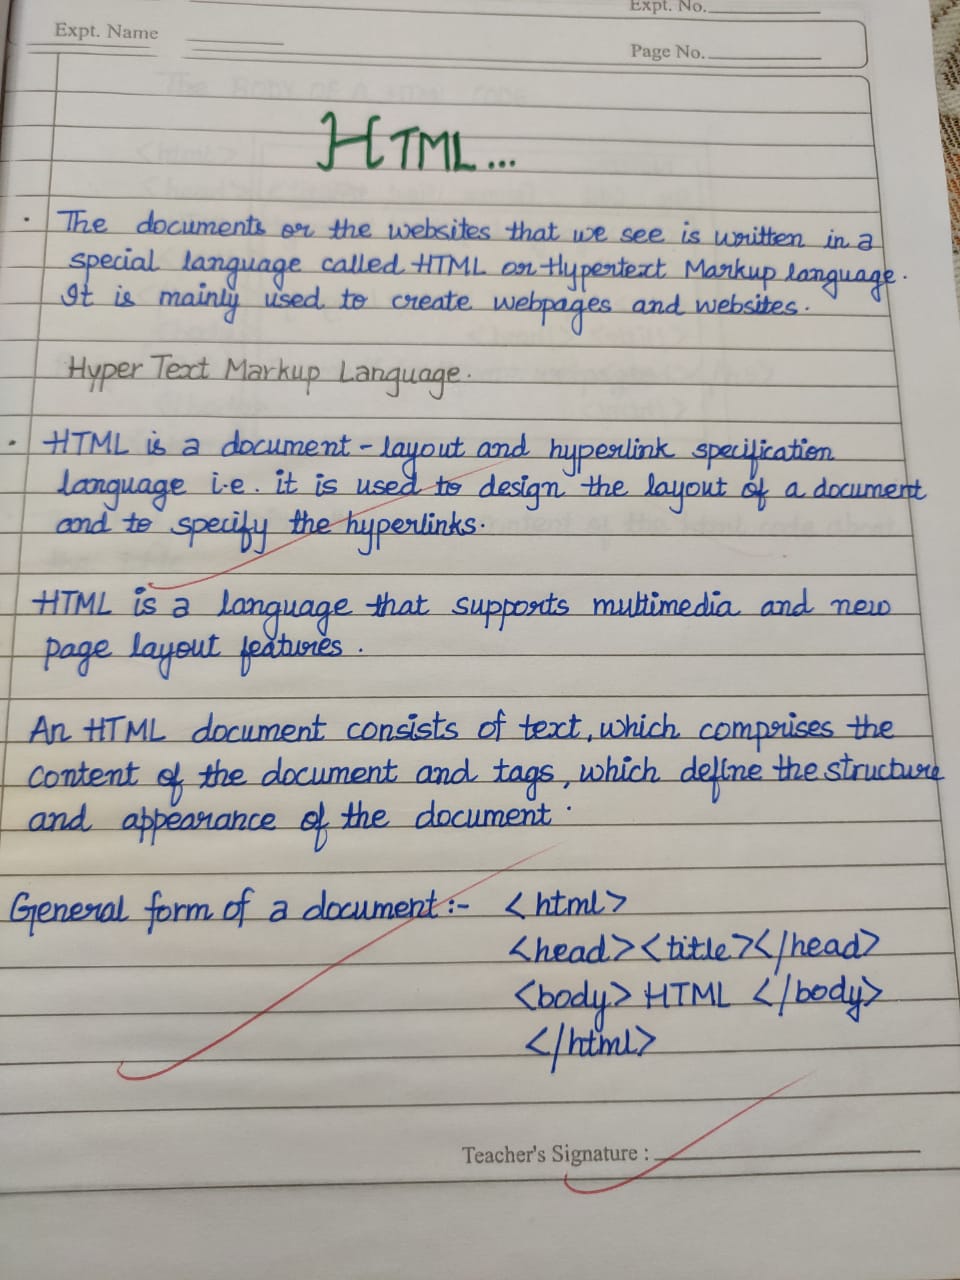 Expt. No.
Expt. Name
Page No.
HTML...
• The documents or the websites that we see is written in a
special language called HTML or Hypertext Markup language.
It is mainly used to create webpages and websites.
Hyper Text Markup Language.
• HTML is a document - layout and hyperlink specification
language i.e. it is used to design the layout of a document
and to specify the hyperlinks.
HTML is a language that supports multimedia and new
page layout features.
An HTML document consists of text, which comprises the
content of the document and tags, which define the structure
and appearance of the document.
General form of a document :- <html>
<head><title></head>
<body> HTML </body>
</html>
Teacher's Signature :